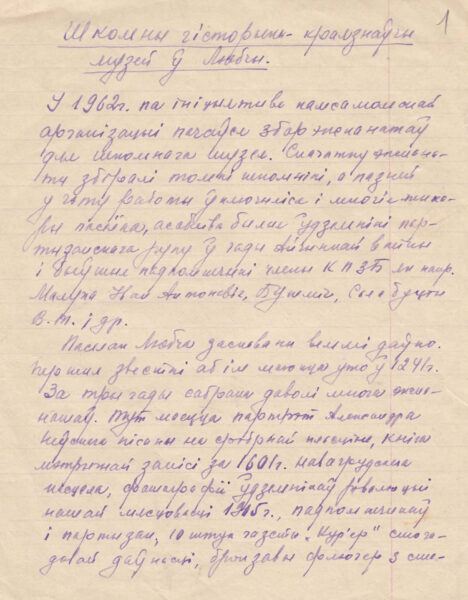 1
Школьны гісторыка-краязнаўчы
музей ў Любчы.
У 1962г. па ініцыятыве камсамольскай
арганізацыі пачаўся збор экспанатаў
для школьнага музея. Спачатку экспана-
ты збіралі толькі школьнікі, а пазней
у гэту работу ўключыліся і многія жыха-
ры пасёлка, асабліва былыя ўдзельнікі пар-
тызанскага руху ў гады Айчыннай вайны
і былыя падпольшчыкі члены КПЗБ як напр.
Іван Антонавіч,
В. т. і др.
Пасёлак Любча заснаваны вельмі даўно.
Першыя звесткі аб ім ёсць ужо ў 1241г.
За тры гады сабралі даволі многа экспа-
натаў. Тут маецца партрэт Александра
пісаны на срэбранай пласціне, кніга
метрычнай запісі за 1601г. навагрудскага
касцёла, фотаграфіі ўдзельнікаў рэвалюцыі
нашай мясцовасці 1905г., падпольшчыкаў
і партызан, 10 штук газеты „Кур'ер" стога-
довай даўнасці, бронзавы флюгер з